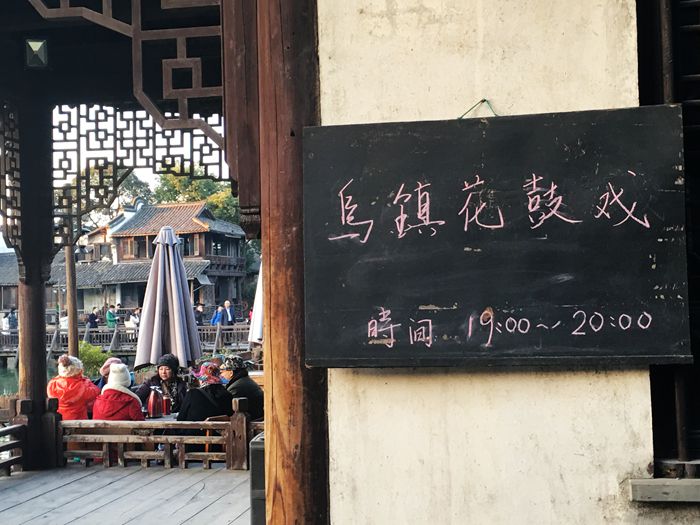 烏鎮花鼓戏
時间 19:00~20:00